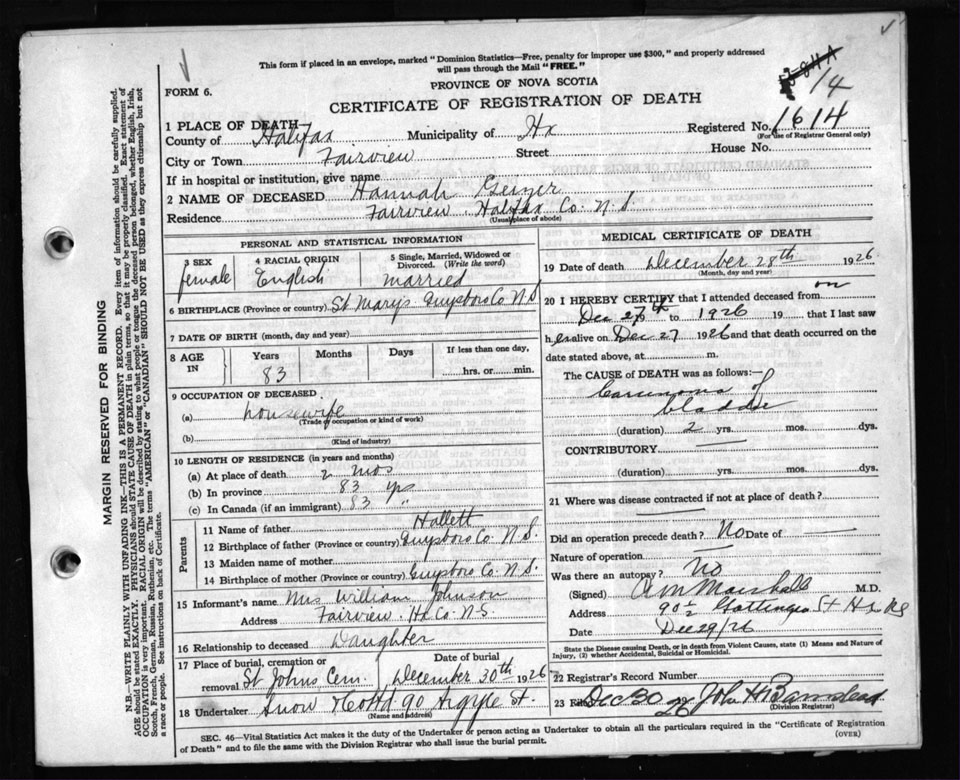 This form if placed in an envelope, marked "Dominion Statistics—Free, penalty for improper use $300," and properly addressed
will pass through the Mail "FREE."
PROVINCE OF NOVA SCOTIA
FORM 6.
CERTIFICATE OF REGISTRATION OF DEATH
14
1 PLACE OF DEATH—
County of Halifax Municipality of Hx Registered No. 1614
(For use of Registrar General only)
City or Town Fairview Street House No.
If in hospital or institution, give name
2 NAME OF DECEASED Hannah Geizer
Residence Fairview Halifax Co. N.S.
(Usual place of abode)
PERSONAL AND STATISTICAL INFORMATION
3 SEX 4 RACIAL ORIGIN 5 Single, Married, Widowed or
Divorced. (Write the word)
female English married
6 BIRTHPLACE (Province or country) St Marys Guysboro Co. N.S
7 DATE OF BIRTH (month, day and year)
8 AGE IN Years Months Days If less than one day,
83 hrs. or min.
9 OCCUPATION OF DECEASED
(a) housewife
(Trade or occupation or kind of work)
(b)
(Kind of industry)
10 LENGTH OF RESIDENCE (in years and months)
(a) At place of death 2 mos
(b) In province 83 yrs
(c) In Canada (if an immigrant) 83 "
Parents
11 Name of father Hallett
12 Birthplace of father (Province or country) Guysboro Co. N.S.
13 Maiden name of mother
14 Birthplace of mother (Province or country) Guysboro Co. N.S.
15 Informant's name Mrs William Johnson
Address Fairview. Hx Co. N.S.
16 Relationship to deceased Daughter
17 Place of burial, cremation or removal St Johns Cem. Date of burial December 30th 1926
18 Undertaker Snow & Co Ltd 90 Argyle St.
(Name and address)
MEDICAL CERTIFICATE OF DEATH
19 Date of death December 28th 1926
(Month, day and year)
20 I HEREBY CERTIFY that I attended deceased from on
Dec 27th to 1926 19 that I last saw
her alive on Dec 27 1926 and that death occurred on the
date stated above, at m.
The CAUSE of DEATH was as follows:—
Carcinoma of
bladder
(duration) 2 yrs. mos. dys.
CONTRIBUTORY
(duration) yrs. mos. dys.
21 Where was disease contracted if not at place of death?
Did an operation precede death? No Date of
Nature of operation
Was there an autopsy? No
(Signed) Marshall M.D.
Address 90½ Gottingen St Hx NS
Date Dec 29/26
State the Disease causing Death, or in death from Violent Causes, state (1) Means and Nature of
Injury, (2) whether Accidental, Suicidal or Homicidal.
22 Registrar's Record Number
23 Filed Dec 30 26 John H Barnstead
(Division Registrar)
SEC. 46—Vital Statistics Act makes it the duty of the Undertaker or person acting as Undertaker to obtain all the particulars required in the "Certificate of Registration
of Death" and to file the same with the Division Registrar who shall issue the burial permit.
(OVER)
MARGIN RESERVED FOR BINDING
N.B.—WRITE PLAINLY WITH UNFADING INK—THIS IS A PERMANENT RECORD. Every item of information should be carefully supplied.
AGE should be stated EXACTLY. PHYSICIANS should STATE CAUSE OF DEATH in plain terms, so that it may be properly classified. Exact statement of
OCCUPATION is very important. RACIAL ORIGIN will be described by stating to what people or tongue the deceased person belonged, whether English, Irish,
Scotch, French, German, Russian, Ruthenian, etc. The terms "AMERICAN" or "CANADIAN" SHOULD NOT BE USED as they express citizenship but not
a race or people. See instructions on back of Certificate.